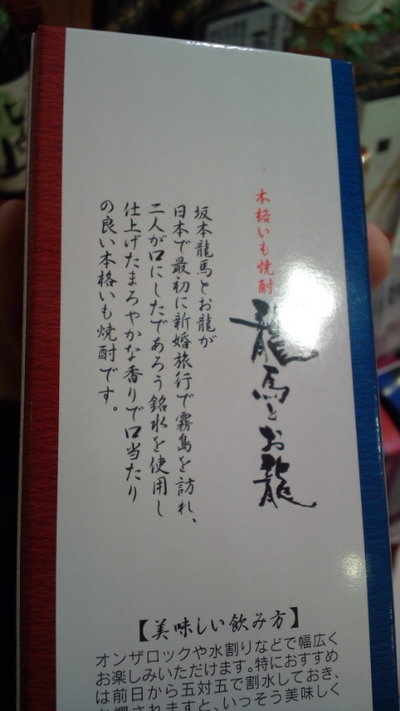 本格いも焼酎
龍馬とお龍
坂本龍馬とお龍が
日本で最初に新婚旅行で霧島を訪れ、
二人が口にしたであろう銘水を使用し
仕上げたまろやかな香りで口当たり
の良い本格いも焼酎です。
【美味しい飲み方】
オンザロックや水割りなどで幅広く
お楽しみいただけます。特におすすめ
は前日から五対五で割水しておき、
お燗されますと、いっそう美味しく